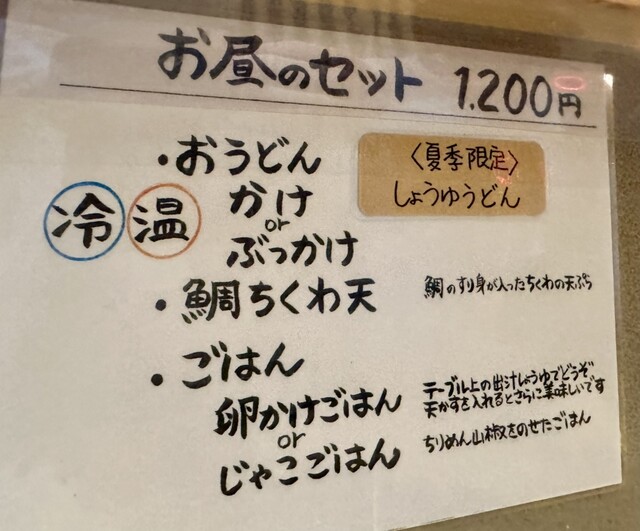 お昼のセット 1.200円
・おうどん
〈夏季限定〉
しょうゆうどん
冷 温
かけ
or
ぶっかけ
・鯛ちくわ天
鯛のすり身が入ったちくわの天ぷら
・ごはん
卵かけごはん
テーブル上の出汁しょうゆでどうぞ
天かすを入れるとさらに美味しいです
or
じゃこごはん
ちりめん山椒をのせたごはん